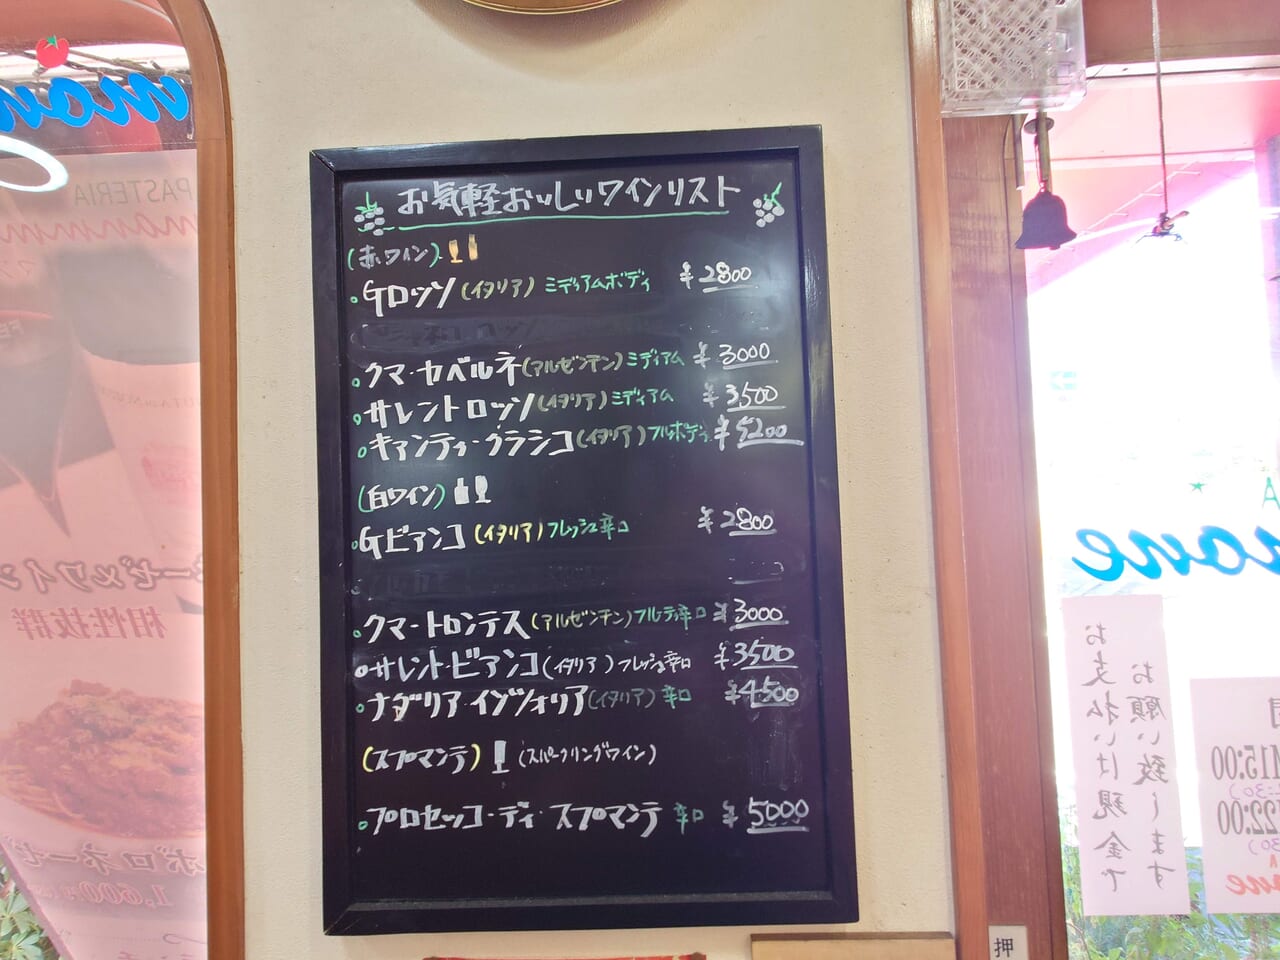 お気軽おいしいワインリスト
(赤ワイン)
Gロッソ(イタリア)ミディアムボディ ¥2800
クマ・カベルネ(アルゼンチン)ミディアム ¥3000
サレントロッソ(イタリア)ミディアム ¥3500
キアンティ・クラシコ(イタリア)フルボディ ¥5200
(白ワイン)
Gビアンコ(イタリア)フレッシュ辛口 ¥2800
クマ・トロンテス(アルゼンチン)フルーティ辛口 ¥3000
サレント・ビアンコ(イタリア)フレッシュ辛口 ¥3500
ナダリア・インツォリア(イタリア)辛口 ¥4500
(スプマンテ)(スパークリングワイン)
プロセッコ・ディ・スプマンテ 辛口 ¥5000
PASTERIA
相性抜群
ボロネーゼ
1,600
お支払いは現金で
お願い致します
15:00
22:00
押